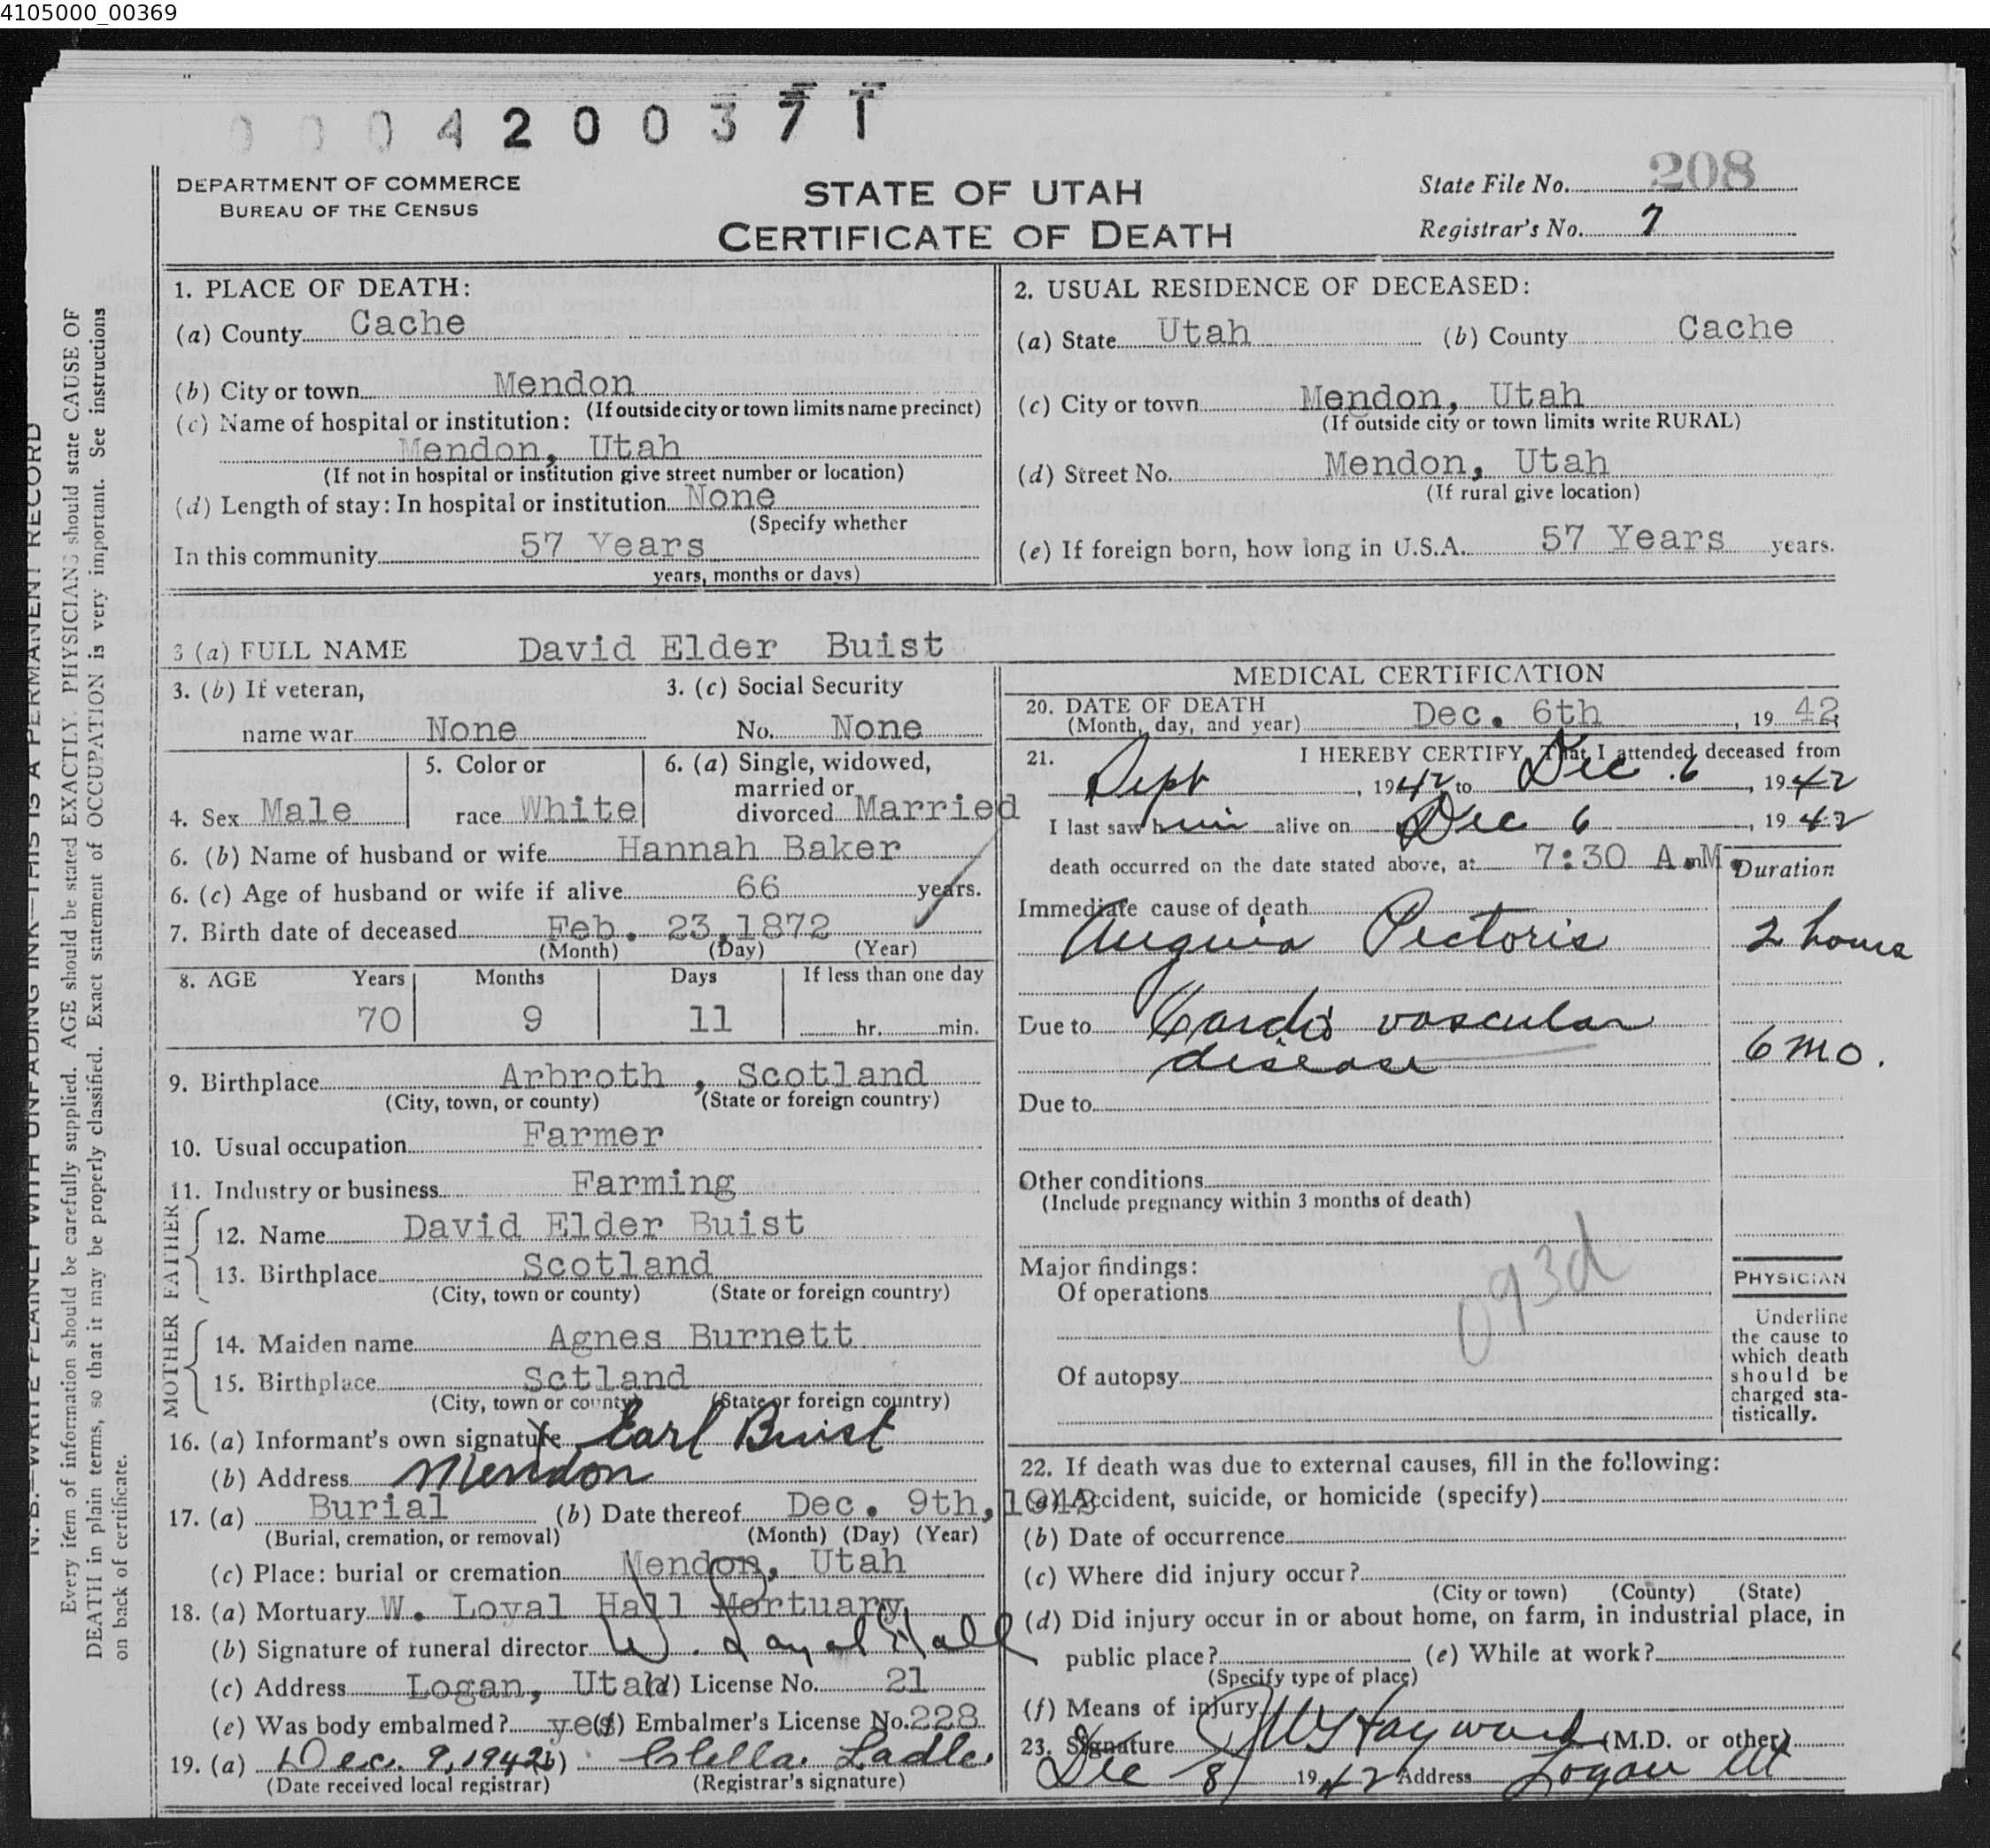 4105000_00369
0004200371
DEPARTMENT OF COMMERCE
BUREAU OF THE CENSUS
STATE OF UTAH
CERTIFICATE OF DEATH
State File No. 208
Registrar's No. 7
N. B.—WRITE PLAINLY WITH UNFADING INK—THIS IS A PERMANENT RECORD
Every item of information should be carefully supplied. AGE should be stated EXACTLY. PHYSICIANS should state CAUSE OF
DEATH in plain terms, so that it may be properly classified. Exact statement of OCCUPATION is very important. See instructions
on back of certificate.
1. PLACE OF DEATH:
(a) County Cache
(b) City or town Mendon
(If outside city or town limits name precinct)
(c) Name of hospital or institution:
Mendon, Utah
(If not in hospital or institution give street number or location)
(d) Length of stay: In hospital or institution None
(Specify whether
In this community 57 Years
years, months or days)
2. USUAL RESIDENCE OF DECEASED:
(a) State Utah (b) County Cache
(c) City or town Mendon, Utah
(If outside city or town limits write RURAL)
(d) Street No. Mendon, Utah
(If rural give location)
(e) If foreign born, how long in U.S.A. 57 Years years.
3 (a) FULL NAME David Elder Buist
3. (b) If veteran, 3. (c) Social Security
name war None No. None
5. Color or 6. (a) Single, widowed,
married or
4. Sex Male race White divorced Married
6. (b) Name of husband or wife Hannah Baker
6. (c) Age of husband or wife if alive 66 years.
7. Birth date of deceased Feb. 23,1872
(Month) (Day) (Year)
8. AGE Years Months Days If less than one day
70 9 11 hr. min.
9. Birthplace Arbroth , Scotland
(City, town, or county) (State or foreign country)
10. Usual occupation Farmer
11. Industry or business Farming
FATHER
12. Name David Elder Buist
13. Birthplace Scotland
(City, town or county) (State or foreign country)
MOTHER
14. Maiden name Agnes Burnett
15. Birthplace Sctland
(City, town or county) (State or foreign country)
16. (a) Informant's own signature x Earl Buist
(b) Address Mendon
17. (a) Burial (b) Date thereof Dec. 9th,1942
(Burial, cremation, or removal) (Month) (Day) (Year)
(c) Place: burial or cremation Mendon, Utah
18. (a) Mortuary W. Loyal Hall Mortuary
(b) Signature of funeral director W. Loyal Hall
(c) Address Logan, Utah (d) License No. 21
(e) Was body embalmed? yes (f) Embalmer's License No. 228
19. (a) Dec. 9, 1942 (b) Clella Ladle
(Date received local registrar) (Registrar's signature)
MEDICAL CERTIFICATION
20. DATE OF DEATH
(Month, day, and year) Dec. 6th, 19 42
21. I HEREBY CERTIFY, That I attended deceased from
Sept, 1942 to Dec. 6, 1942
I last saw him alive on Dec 6, 1942
death occurred on the date stated above, at 7:30 A.M. m.
Duration
Immediate cause of death
Angina Pectoris 2 hours
Due to Cardio vascular
disease 6 mo.
Due to
Other conditions
(Include pregnancy within 3 months of death)
Major findings:
Of operations
093d
Of autopsy
PHYSICIAN
Underline
the cause to
which death
should be
charged sta-
tistically.
22. If death was due to external causes, fill in the following:
(a) Accident, suicide, or homicide (specify)
(b) Date of occurrence
(c) Where did injury occur?
(City or town) (County) (State)
(d) Did injury occur in or about home, on farm, in industrial place, in
public place? (e) While at work?
(Specify type of place)
(f) Means of injury
23. Signature Hayward (M.D. or other)
Dec 8, 1942 Address Logan Ut